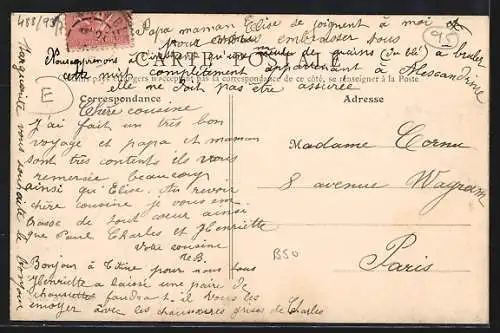 488/93
Papa maman Elise se joignent à moi et
pour vous embrasser tous
CARTE POSTALE
Nous apprenons à l'instant qu'une meule de grains (du blé) a brulé
cette nuit complètement appartenant à Alessandrine
elle ne doit pas être assurée
Tous les pays étrangers n'acceptent pas la correspondance de ce côté, se renseigner à la Poste
95
E
Correspondance
Adresse
Chère cousine
J'ai fait un très bon
voyage et papa et maman
sont très contents ils vous
remercie beaucoup
ainsi qu'Elise. Au revoir
chère cousine je vous em
brasse de tout cœur ainsi
que Paul Charles et Henriette
Votre cousine
Bonjour à Titine pour nous tous
Henriette a laissé une paire de
chaussettes faudrait il vous les
envoyer avec les chaussures grises de Charles
Madame Cornu
8 avenue Wagram
Paris
B50
Marguerite vous souhaite le bonjour